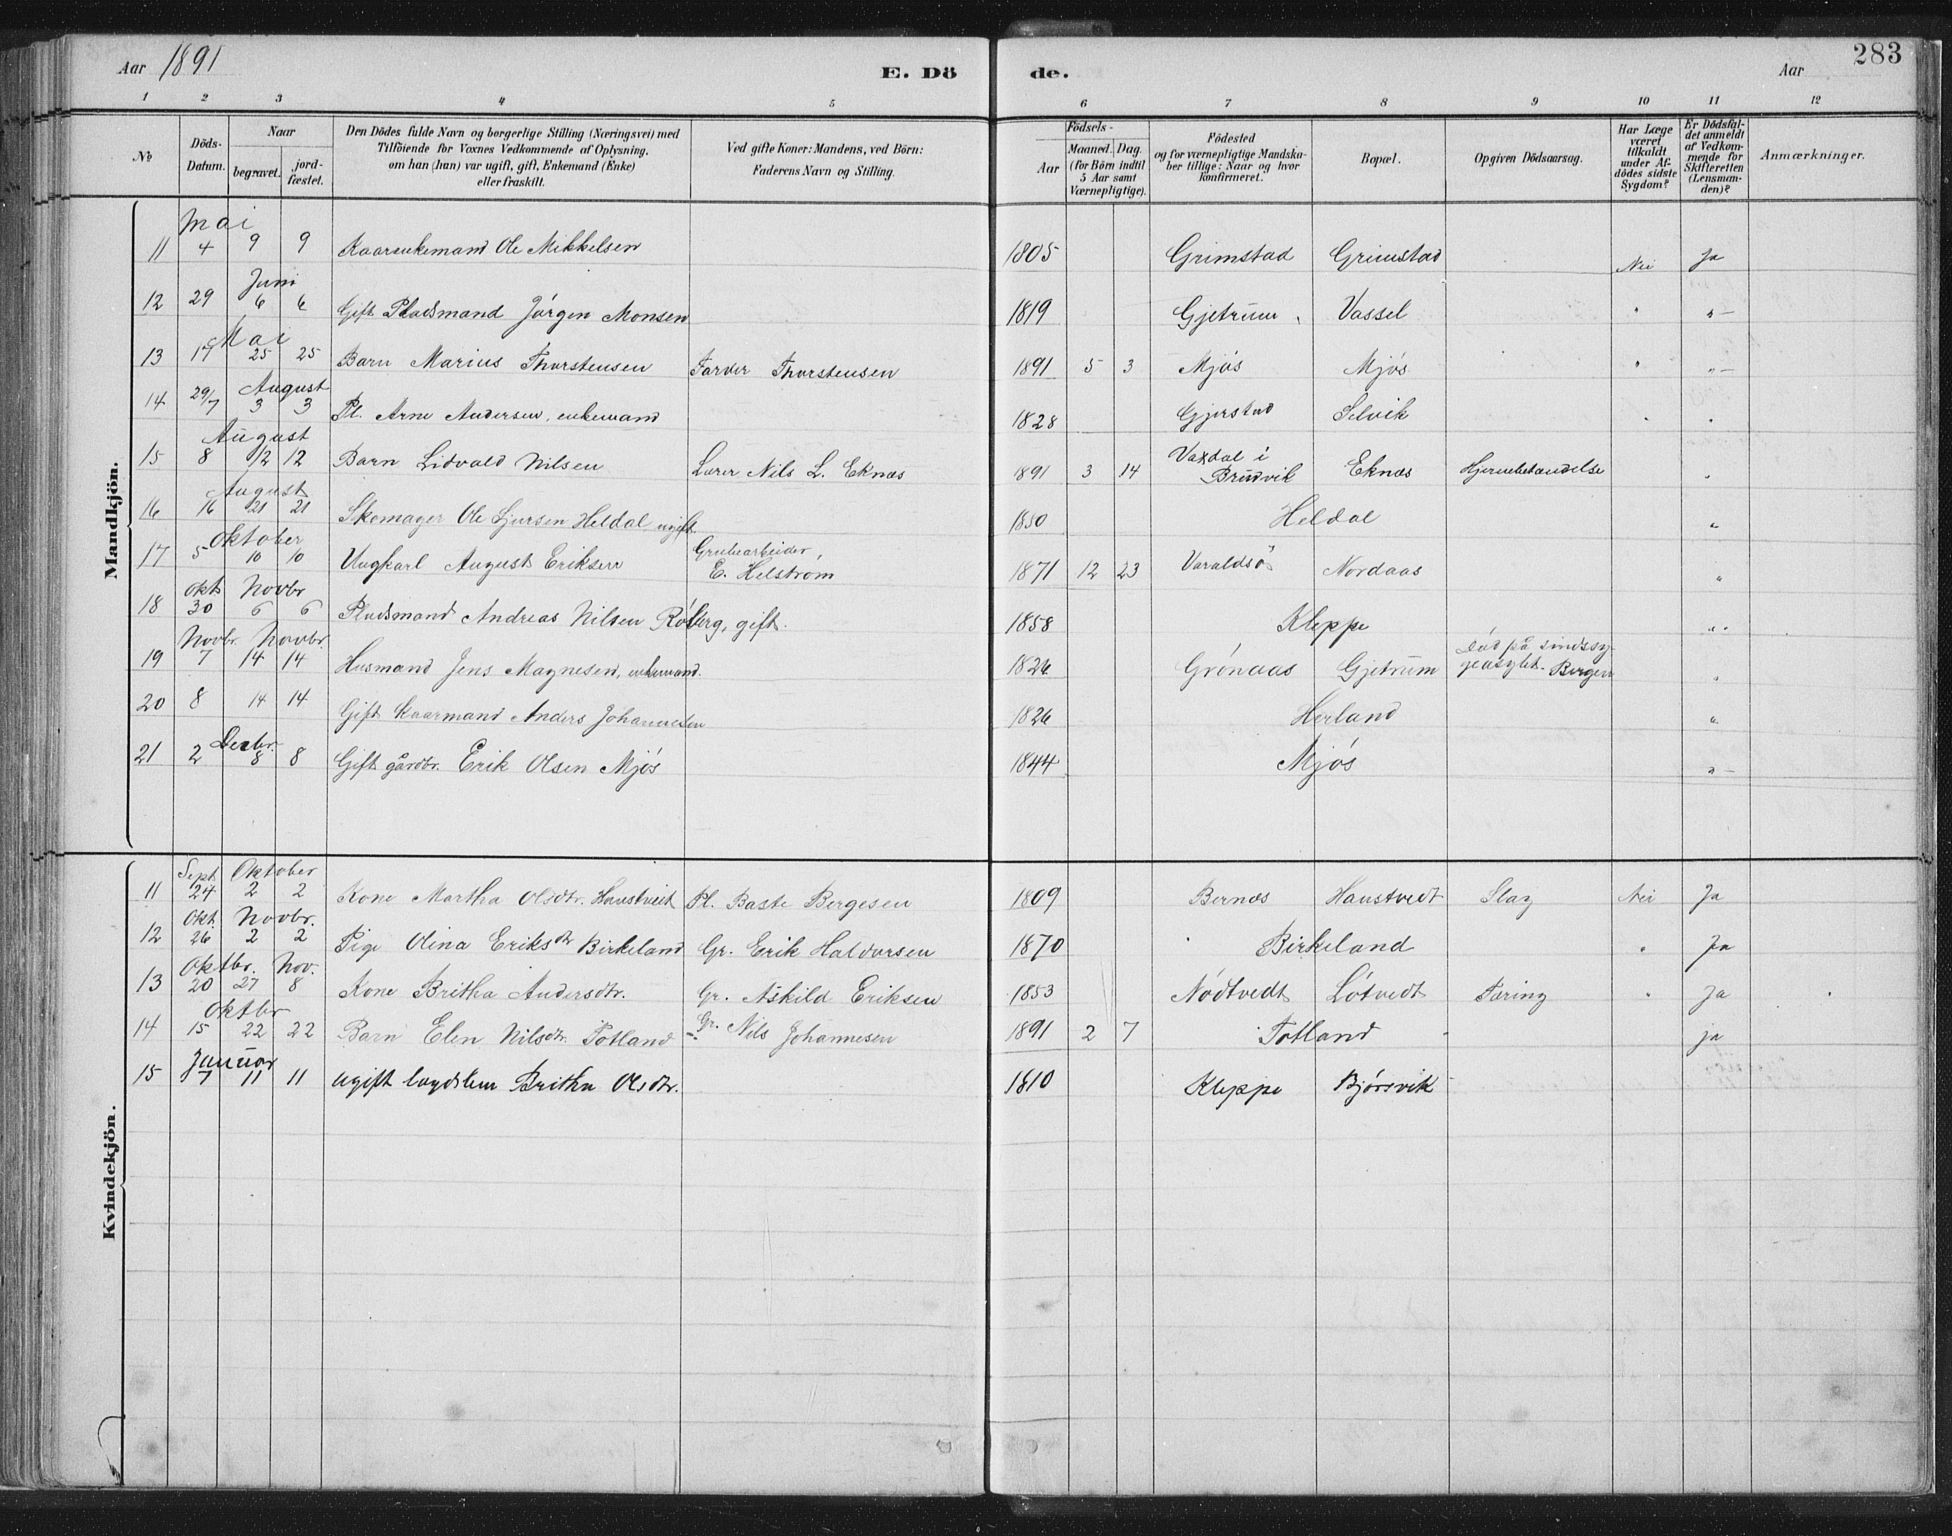 Aar 1891 E. Dö de. Aar 283
1 2 3 4 5 6 7 8 9 10 11 12
No Döds-Datum. Naar begravet. jordfæstet. Den Dödes fulde Navn og borgerlige Stilling (Næringsvei) med Tilföiende for Voxnes Vedkommende af Oplysning, om han (hun) var ugift, gift, Enkemand (Enke) eller fraskilt. Ved gifte Koner: Mandens, ved Börn: Faderens Navn og Stilling. Födsels- Aar Maaned. Dag. (for Börn indtil 5 Aar samt Værnepligtige). Födested og for værnepligtige Mandskaber tillige: Naar og hvor konfirmeret. Bopæl. Opgiven Dödsaarsag. Har Læge været tilkaldt under Afdödes sidste Sygdom? Er Dödsfaldet anmeldt af Vedkommende for Skifteretten (Lensmanden)? Anmærkninger.
Mandkjön.
Mai
11 4 9 9 Kaarenkemand Ole Mikkelsen 1805 Grimstad Grimstad Nei Ja
Juni
12 29 6 6 Gift Pladsmand Jörgen Monsen 1819 Gjetrum Vassel " "–
Mai
13 17 25 25 Barn Marius Thorstensen Farver Thorstensen 1891 5 3 Mjøs Mjøs " "–
August
14 29/7 3 3 Pl. Arne Andersen, enkemand 1828 Gjerstad Selvik " "
August
15 8 12 12 Barn Lidvald Nilsen Lærer Nils L. Eknæs 1891 3 14 Vaxdal i Brudvik Eknæs Hjernebetændelse "
August
16 16 21 21 Skomager Ole Ljursen Heldal ugift 1850 Heldal "
Oktober
17 5 10 10 Ungkarl August Eriksen Grubearbeider, E. Helstrøm 1871 12 23 Varaldsö Nordaas "
Okt Novbr
18 30 6 6 Pladsmand Andreas Nilsen Röberg, gift. 1858 Kleppe "
Novbr. Novbr.
19 7 14 14 Husmand Jens Magnesen, enkemand. 1826 Grönaas Gjetrum Död på sindssygeasylet. Bergen "
20 8 14 14 Gift kaarmand Anders Johannesen 1826 Herland "
Decbr.
21 2 8 8 Gift gårdbr. Erik Olsen Mjøs 1844 Mjøs "–
Kvindekjön.
Sept Oktober
11 24 2 2 Kone Martha Olsdtr. Haustveit Pl. Baste Bergesen 1809 Bernæs Haustvedt Slag Nei Ja
Okt. Novbr.
12 26 2 2 Pige Olina Eriksdtr Birkeland Gr. Erik Haldorsen 1870 Birkeland " Ja
Oktbr. Nov.
13 20 27 8 Kone Britha Andersdtr. Gr. Askild Eriksen 1853 Nödtvedt Lötvedt Tæring " Ja
Oktbr
14 15 22 22 Barn Elen Nilsdtr. Totland Gr. Nils Johannesen 1891 2 7 Totland ja
Januar
15 7 11 11 ugift lægdslem Britha Olsdtr. 1810 Kleppe Bjørsvik